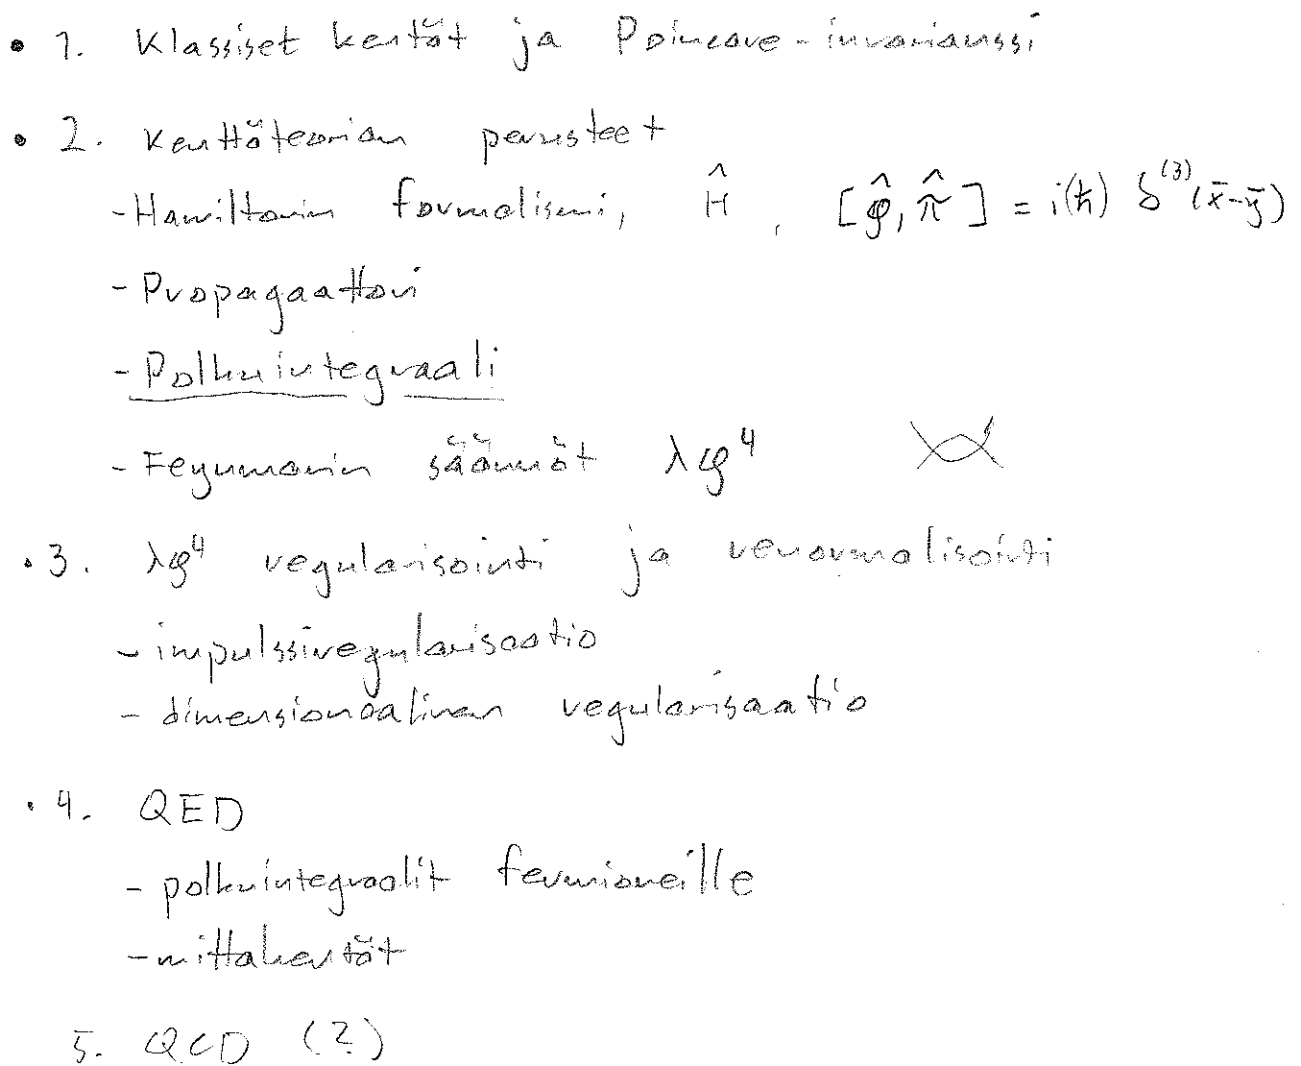 • 1. Klassiset kentät ja Poincare-invarianssi
• 2. Kenttäteorian perusteet
- Hamiltonin formalismi, Ĥ, [φ̂, π̂] = i(ħ) δ⁽³⁾(x̄-ȳ)
- Propagaattori
- Polkuintegraali
- Feynmanin säännöt λφ⁴
• 3. λφ⁴ regularisointi ja renormalisointi
- impulssiregularisaatio
- dimensionaalinen regularisaatio
• 4. QED
- polkuintegraalit fermioneille
- mittakentät
5. QCD (?)